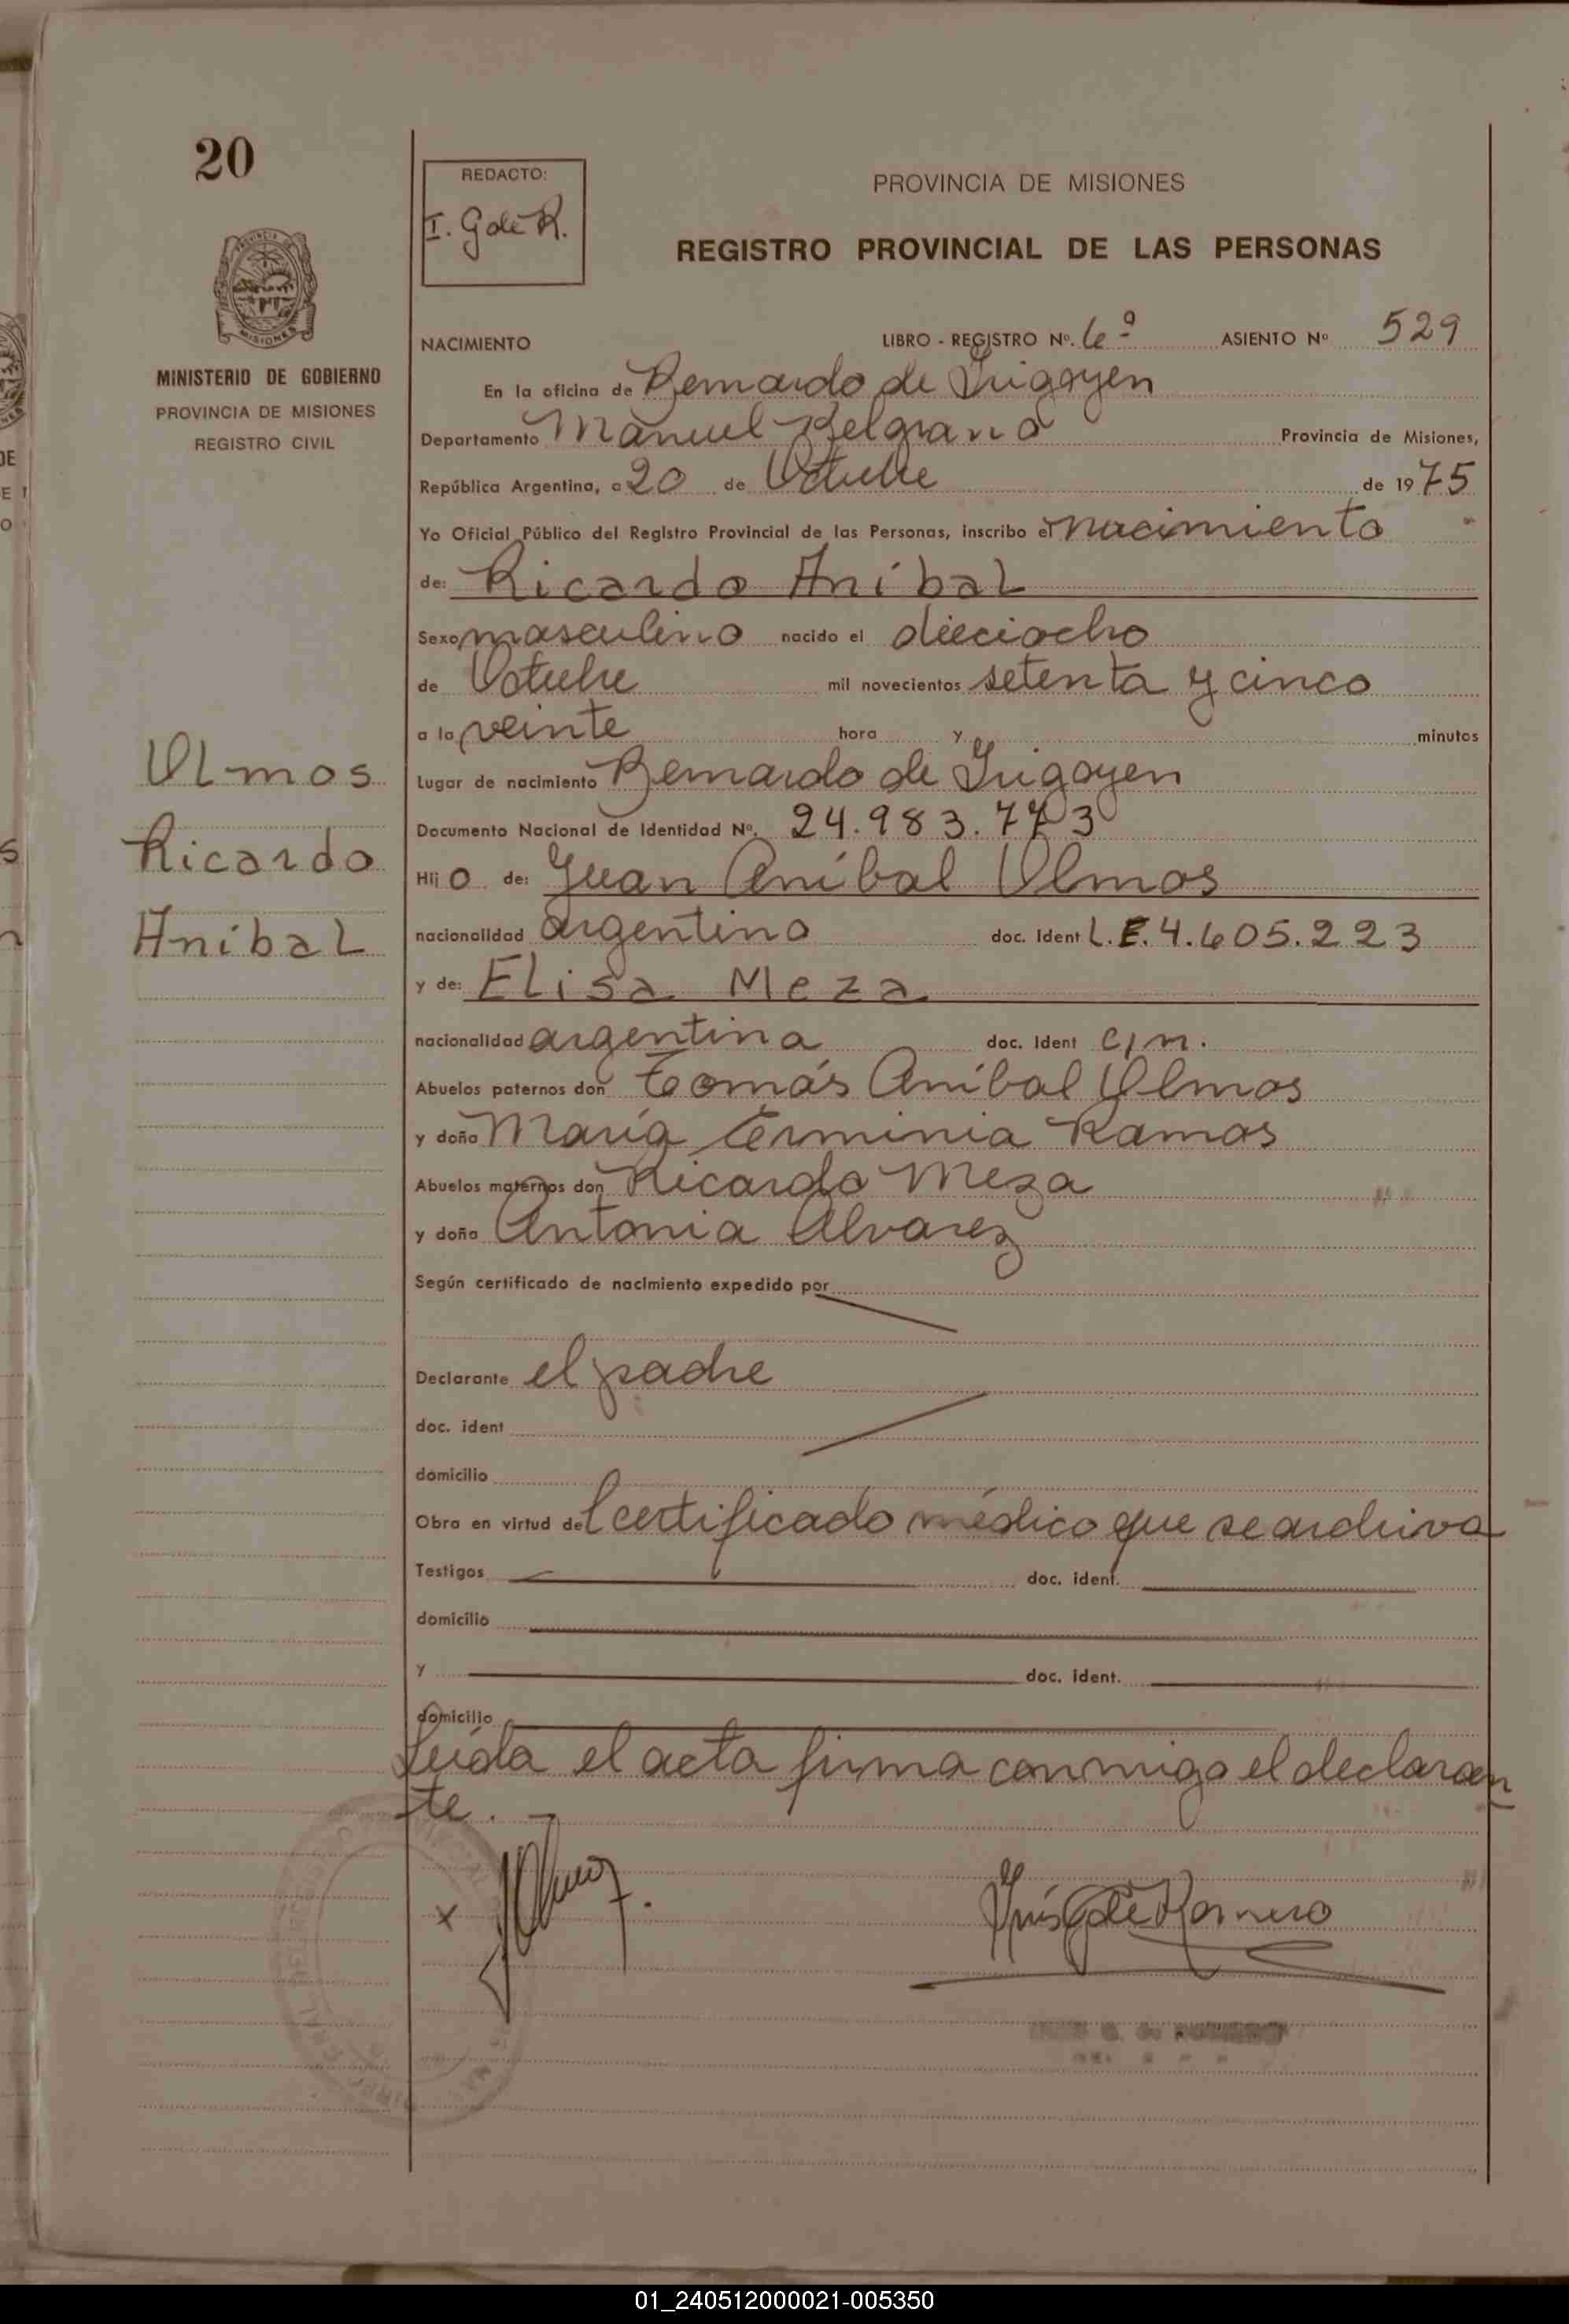 20
REDACTO:
I. G de R.
PROVINCIA DE MISIONES
REGISTRO PROVINCIAL DE LAS PERSONAS
MINISTERIO DE GOBIERNO
PROVINCIA DE MISIONES
REGISTRO CIVIL
NACIMIENTO LIBRO - REGISTRO Nº. 6º ASIENTO Nº 529
En la oficina de Bernardo de Irigoyen
Departamento Manuel Belgrano Provincia de Misiones,
República Argentina, a 20 de Octubre de 1975
Yo Oficial Público del Registro Provincial de las Personas, inscribo el nacimiento
de: Ricardo Aníbal
Sexo masculino nacido el dieciocho
de Octubre mil novecientos setenta y cinco
a la veinte hora y minutos
Olmos
Ricardo
Aníbal
Lugar de nacimiento Bernardo de Irigoyen
Documento Nacional de Identidad Nº. 24.983.773
Hij o de: Juan Aníbal Olmos
nacionalidad argentino doc. Ident L.E. 4.605.223
y de: Elisa Meza
nacionalidad argentina doc. Ident c/n.
Abuelos paternos don Tomás Aníbal Olmos
y doña María Erminia Ramos
Abuelos maternos don Ricardo Meza
y doña Antonia Alvarez
Según certificado de nacimiento expedido por
Declarante el padre
doc. ident
domicilio
Obra en virtud del certificado médico que se archiva
Testigos doc. ident.
domicilio
y doc. ident.
domicilio
Leída el acta firma conmigo el declaran
te.
x JOlmos
Inés G de Romero
01_240512000021-005350